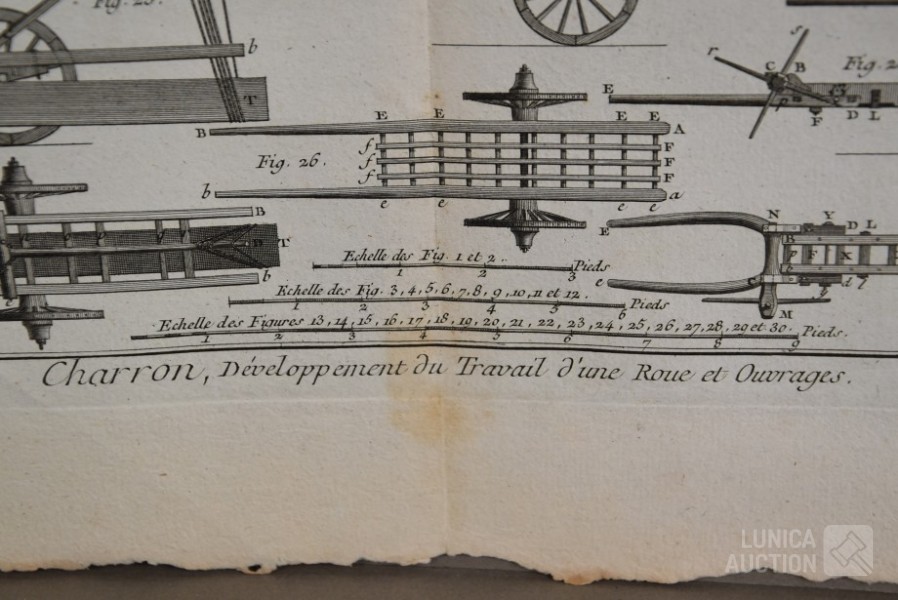 Fig. 25.
b
T
r
s
C
B
Fig. 2
E
p
F
D L
E E E E
B A
f F
Fig. 26. f F
f F
b a
e e e e
B
D T
b
e
E N Y D L
B
P F X
b
e d l
M
Echelle des Fig. 1 et 2.
1 2 3 Pieds
Echelle des Fig. 3, 4, 5, 6, 7, 8, 9, 10, 11 et 12.
1 2 3 4 5 6 Pieds
Echelle des Figures 13, 14, 15, 16, 17, 18, 19, 20, 21, 22, 23, 24, 25, 26, 27, 28, 29 et 30. Pieds.
1 2 3 4 5 6 7 8 9
Charron, Développement du Travail d'une Roue et Ouvrages.
LUNICA
AUCTION